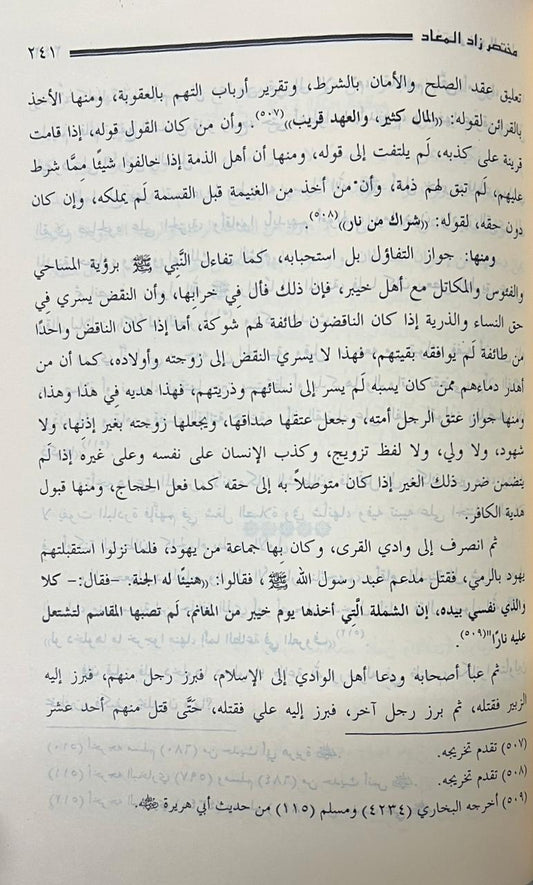 مختصر زاد المعاد
٢٤١
تعليق عقد الصلح والأمان بالشرط، وتقرير أرباب التهم بالعقوبة، ومنها الأخذ
بالقرائن لقوله: «المال كثير، والعهد قريب»(٥٠٧). وأن من كان القول قوله، إذا قامت
قرينة على كذبه، لَم يلتفت إلى قوله، ومنها أن أهل الذمة إذا خالفوا شيئًا مِمَّا شرط
عليهم، لَم تبق لهم ذمة، وأن من أخذ من الغنيمة قبل القسمة لَم يملكه، وإن كان
دون حقه، لقوله: «شراك من نار»(٥٠٨).
ومنها: جواز التفاؤل بل استحبابه، كما تفاءل النَّبي ﷺ برؤية المساحي
والفئوس والمكاتل مع أهل خيبر، فإن ذلك فأل فِي خرابها، وأن النقض يسري فِي
حق النساء والذرية إذا كان الناقضون طائفة لهم شوكة، أما إذا كان الناقض واحدًا
من طائفة لَم يوافقه بقيتهم، فهذا لا يسري النقض إلى زوجته وأولاده، كما أن من
أهدر دماءهم ممن كان يسبه لَم يسر إلى نسائهم وذريتهم، فهذا هديه في هذا وهذا،
ومنها جواز عتق الرجل أمته، وجعل عتقها صداقها، ويجعلها زوجته بغير إذنها، ولا
شهود، ولا ولي، ولا لفظ تزويج، وكذب الإنسان على نفسه وعلى غيره إذا لَم
يتضمن ضرر ذلك الغير إذا كان متوصلاً به إلى حقه كما فعل الحجاج، ومنها قبول
هدية الكافر.
ثم انصرف إلى وادي القرى، وكان بِها جماعة من يهود، فلما نزلوا استقبلتهم
يهود بالرمي، فقتل مدعم عبد رسول الله ﷺ، فقالوا: «هنيئًا له الجنة. -فقال:- كلا
والذي نفسي بيده، إن الشملة الَّتِي أخذها يوم خيبر من المغانم، لَم تصبها المقاسم لتشتعل
عليه نارًا"(٥٠٩).
ثم عبأ أصحابه ودعا أهل الوادي إلى الإسلام، فبرز رجل منهم، فبرز إليه
الزبير فقتله، ثم برز رجل آخر، فبرز إليه علي فقتله، حَتَّى قتل منهم أحد عشر
(٥٠٧) تقدم تخريجه.
(٥٠٨) تقدم تخريجه.
(٥٠٩) أخرجه البخاري (٤٢٣٤) ومسلم (١١٥) من حديث أبي هريرة ﷺ.